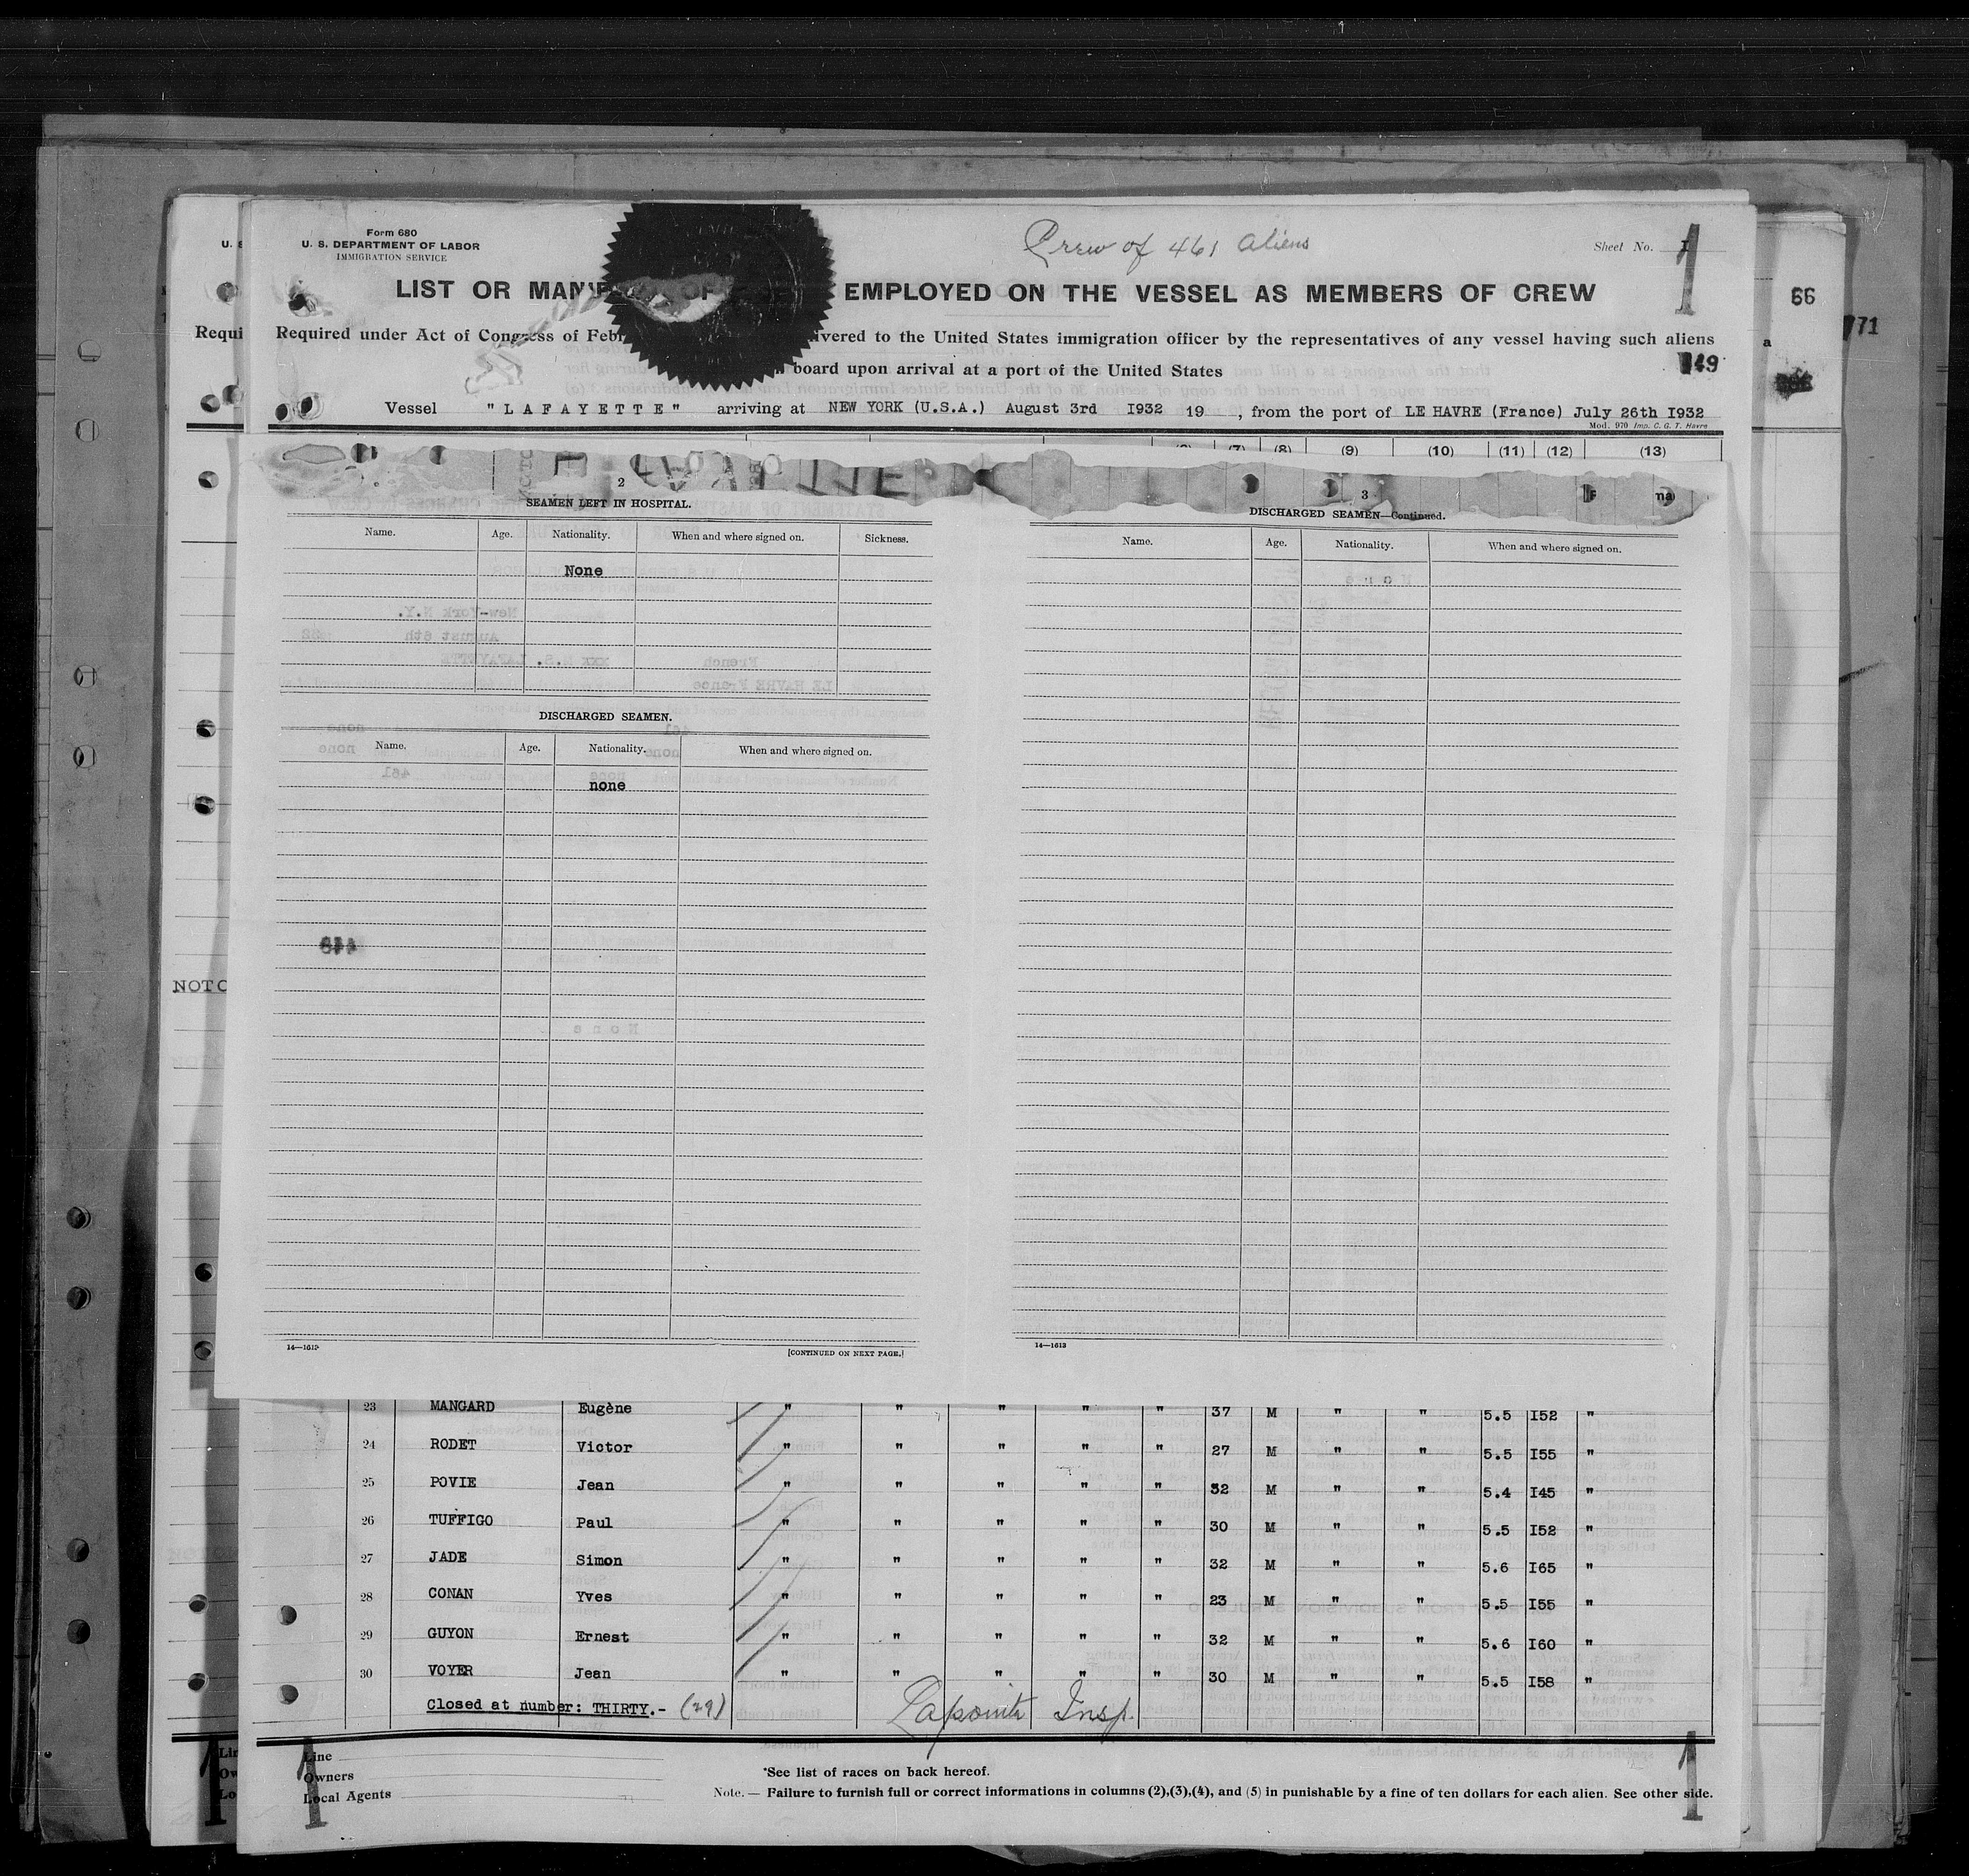 Form 680
U. S. DEPARTMENT OF LABOR
IMMIGRATION SERVICE
Crew of 461 aliens
Sheet No. I
LIST OR OF EMPLOYED ON THE VESSEL AS MEMBERS OF CREW
66
71
Requi
Required under Act of Congress of to the United States immigration officer by the representatives of any vessel having such aliens
a
board upon arrival at a port of the United States
Vessel "LAFAYETTE" arriving at NEW YORK (U.S.A.) August 3rd I932 19 , from the port of LE HAVRE (France) July 26th I932
Mod. 970 Imp. C. G. T. Havre
(7) (8) (9) (10) (11) (12) (13)
2
SEAMEN LEFT IN HOSPITAL.
Name. Age. Nationality. When and where signed on. Sickness.
None
DISCHARGED SEAMEN.
Name. Age. Nationality. When and where signed on.
none
NOT C
14—1613
[CONTINUED ON NEXT PAGE.]
3
DISCHARGED SEAMEN—Continued.
Name. Age. Nationality. When and where signed on.
14—1613
23 MANGARD Eugène " " " " " 37 M " " 5.5 I52 "
24 RODET Victor " " " " " 27 M " " 5.5 I55 "
25 POVIE Jean " " " " " 32 M " " 5.4 I45 "
26 TUFFIGO Paul " " " " " 30 M " " 5.5 I52 "
27 JADE Simon " " " " " 32 M " " 5.6 I65 "
28 CONAN Yves " " " " " 23 M " " 5.5 I55 "
29 GUYON Ernest " " " " " 32 M " " 5.6 I60 "
30 VOYER Jean " " " " " 30 M " " 5.5 I58 "
Closed at number: THIRTY.- (29) Lapointe Insp.
Line
Owners
Local Agents
*See list of races on back hereof.
Note. — Failure to furnish full or correct informations in columns (2),(3),(4), and (5) in punishable by a fine of ten dollars for each alien. See other side.